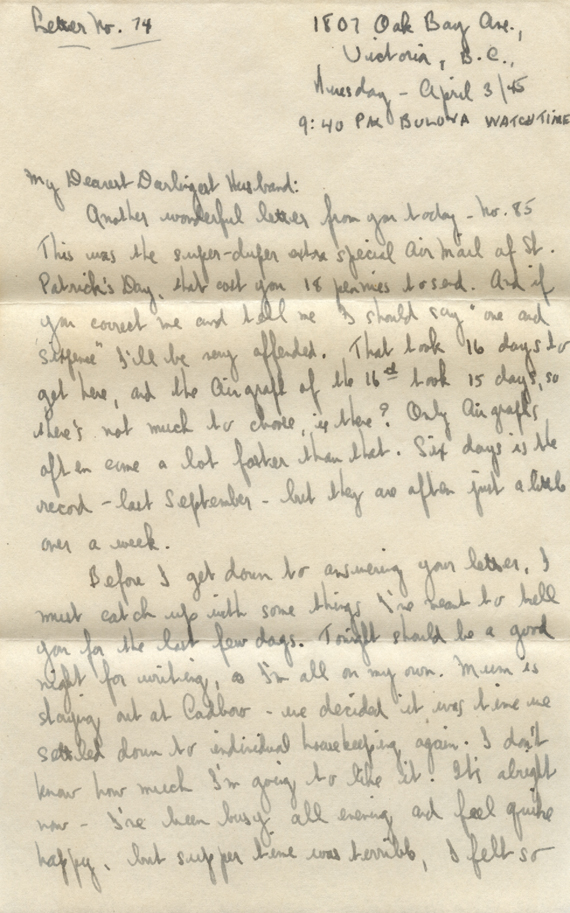 Letter No. 74
1807 Oak Bay Ave.,
Victoria, B.C.,
Tuesday - April 3/45
9:40 PM BULOVA WATCH TIME
My Dearest Darlingest Husband:
Another wonderful letter from you today - No. 85
This was the super-duper extra special Air Mail of St.
Patrick's Day, that cost you 18 pennies to send. And if
you correct me and tell me I should say "one and
sixpence" I'll be very offended. That took 16 days to
get here, and the Airgraph of the 16th took 15 days, so
there's not much to choose, is there? Only Airgraphs
often come a lot faster than that. Six days is the
record - last September - but they are often just a little
over a week.
Before I get down to answering your letter, I
must catch up with some things I've meant to tell
you for the last few days. Tonight should be a good
night for writing, as I'm all on my own. Mum is
staying out at Cadboro - we decided it was time we
settled down to individual housekeeping again. I don't
know how much I'm going to like it. It's alright
now - I've been busy all evening and feel quite
happy, but supper time was terrible, I felt so